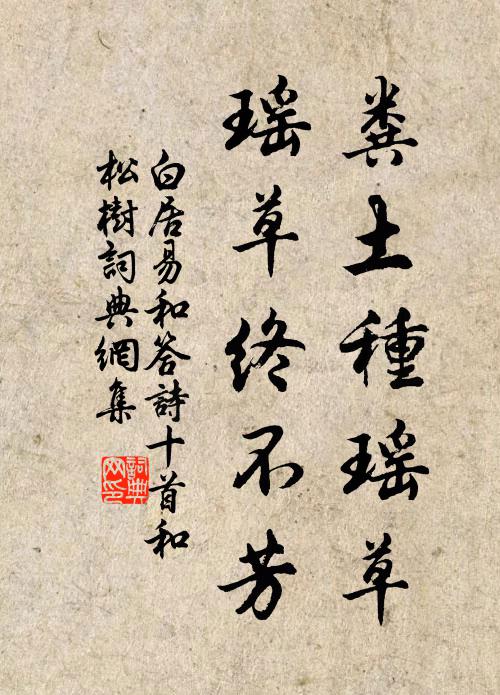 糞土種瑶草
瑶草终不芳
白居易和答詩十首和
松樹詞典網集
詞典
网印